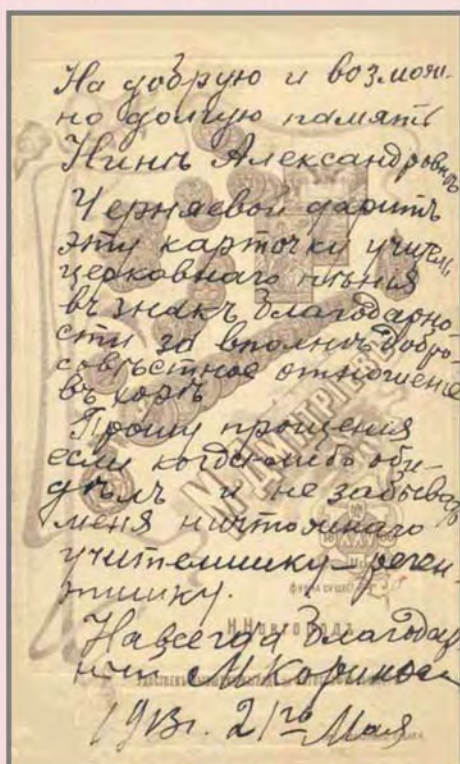 На добрую и возмож-
но долгую память
Нинѣ Александровнѣ
Черняевой даритъ
эту карточку учитель
церковнаго пѣнія
въ знакъ благодарно-
сти за вполнѣ добро-
совѣстное отношеніе
въ хорѣ
М. ДМИТРІЕВЪ
Прошу прощенія
если когда-либо оби-
дѣлъ и не забывать
меня ничтожнаго
учителишку-реген-
тишку.
Н.НОВГОРОДЪ
Навсегда благодар-
ный М.
1913г. 21го Мая